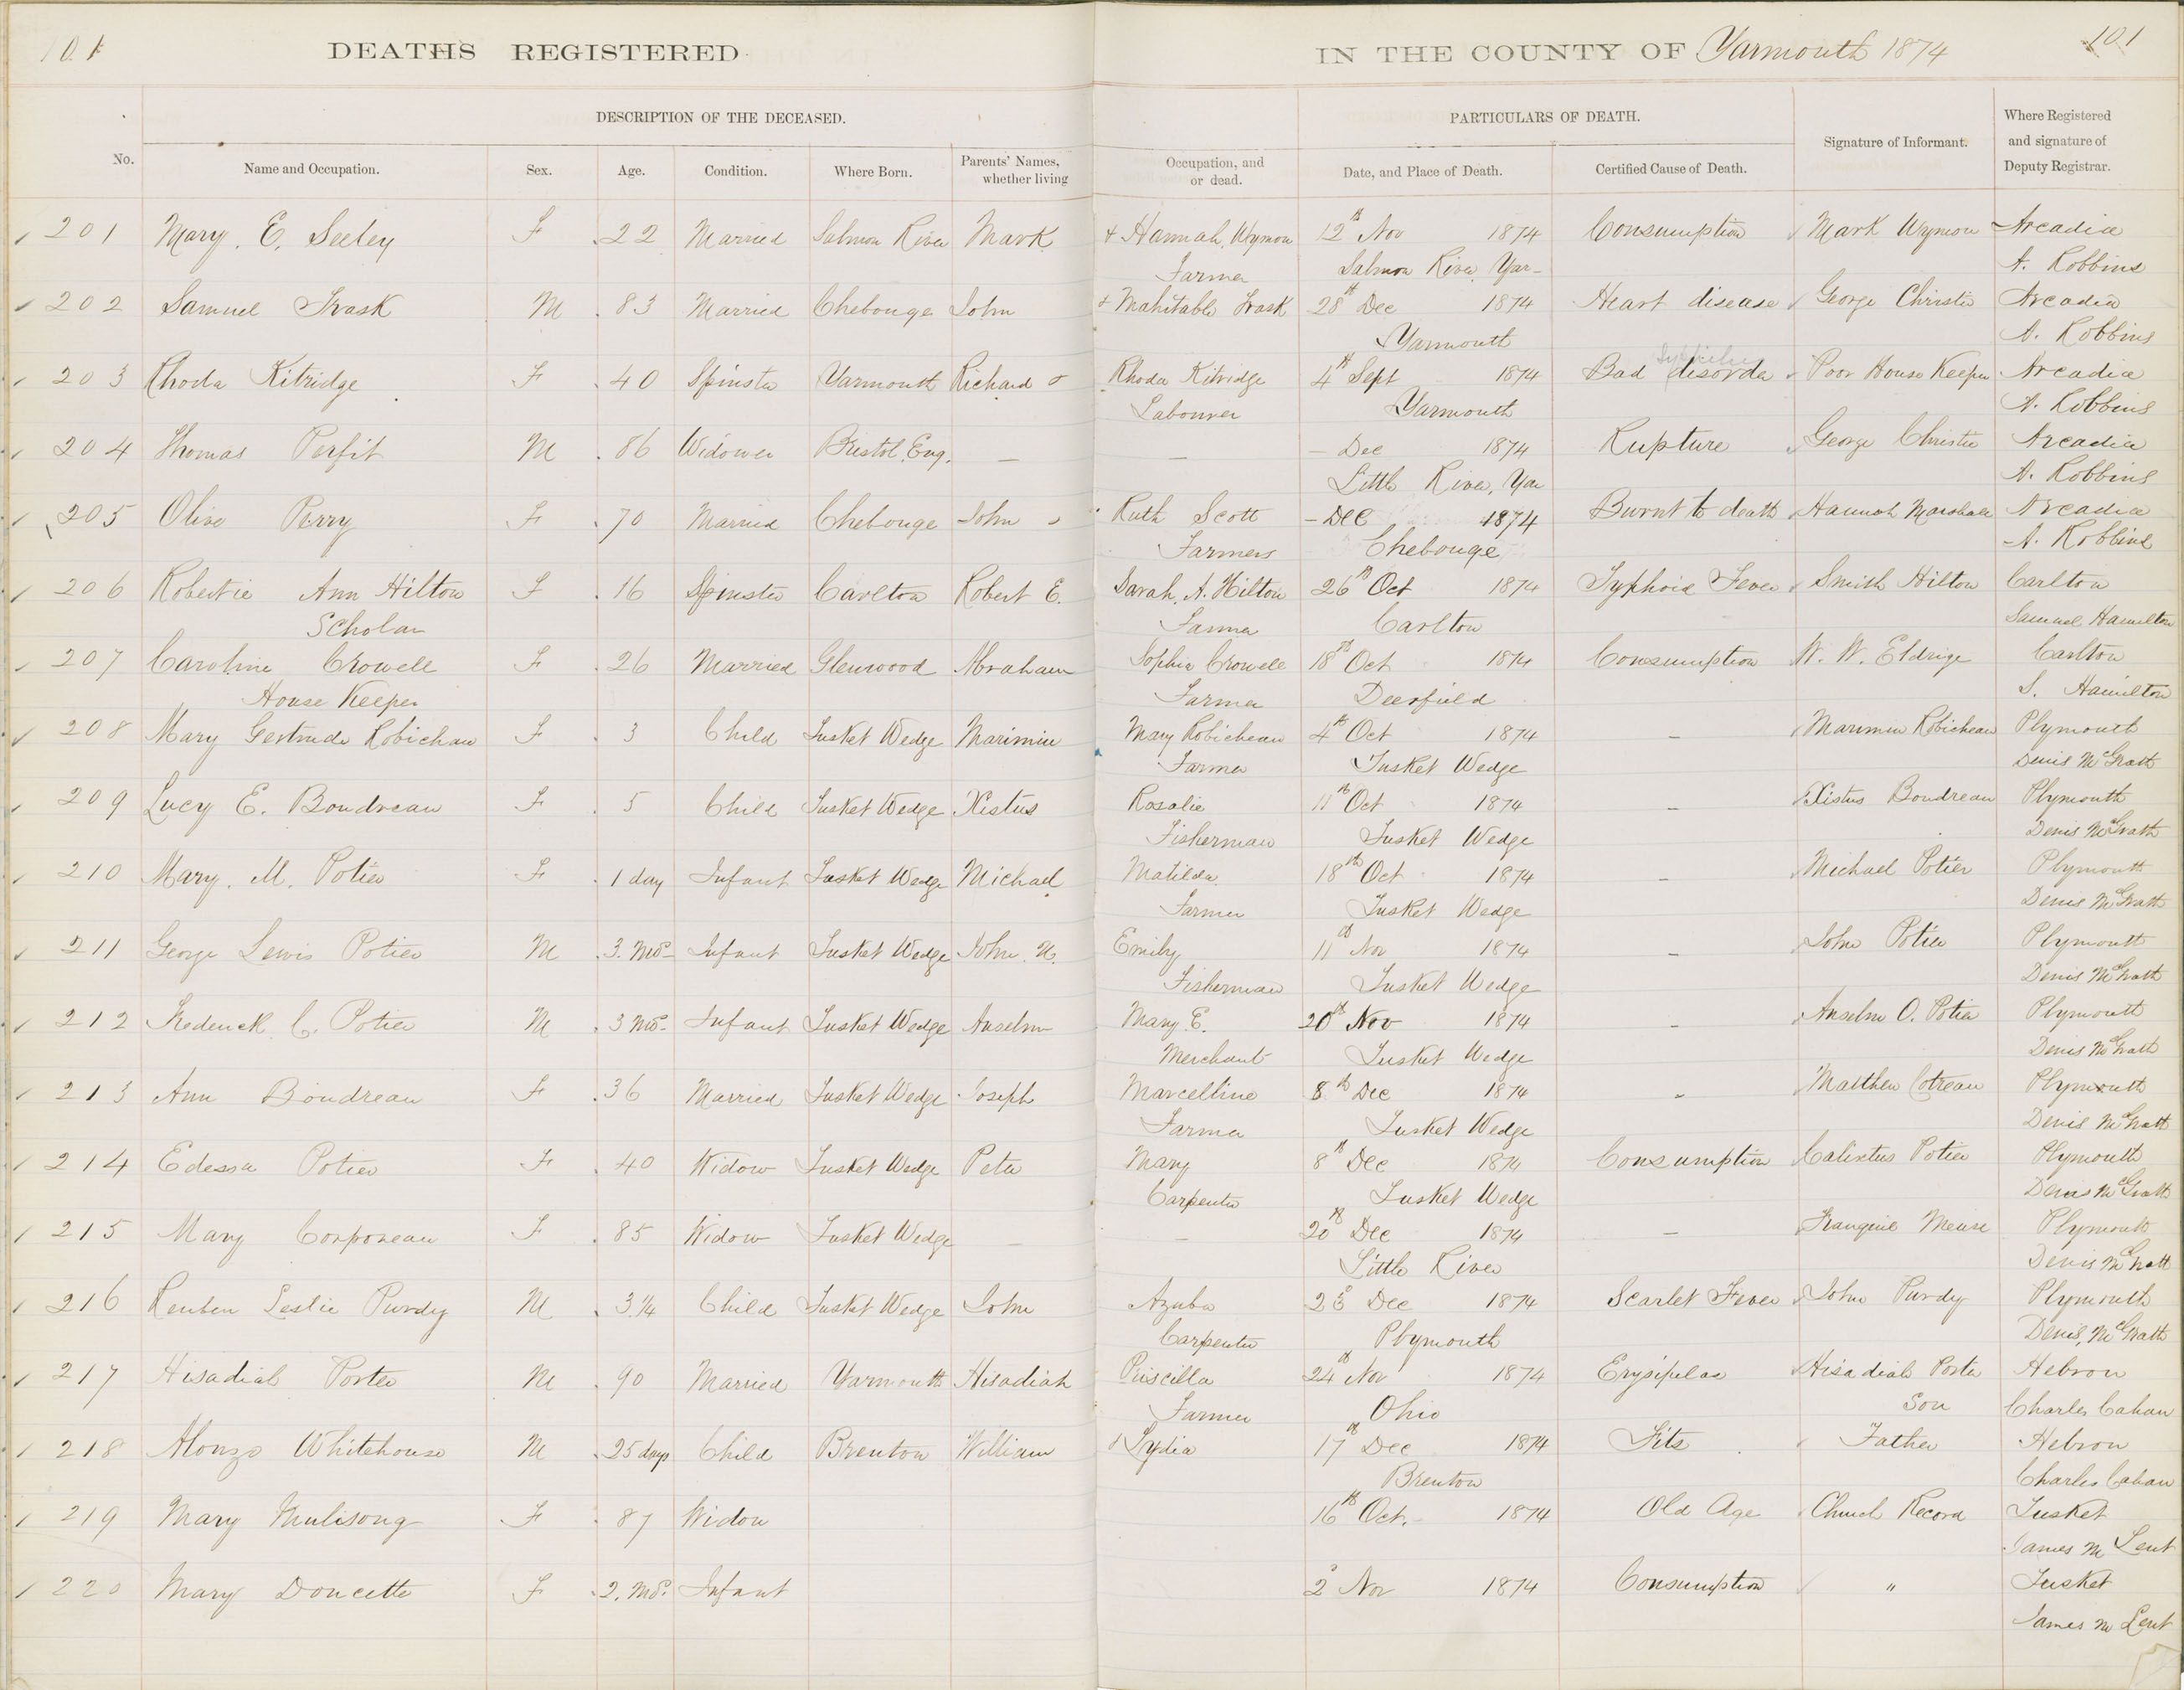 101 DEATHS REGISTERED IN THE COUNTY OF Yarmouth 1874 101
DESCRIPTION OF THE DECEASED. PARTICULARS OF DEATH. Where Registered
and signature of
Deputy Registrar.
No. Name and Occupation. Sex. Age. Condition. Where Born. Parents' Names,
whether living Occupation, and
or dead. Date, and Place of Death. Certified Cause of Death. Signature of Informant.
201 Mary. E. Seeley F 22 Married Salmon River Mark + Hannah Wyman 12th Nov 1874 Consumption Mark Wyman Arcadia
Farmer Salmon River Yar- A. Robbins
202 Samuel Trask M 83 Married Chebouge John + Mahitable Trask 28th Dec 1874 Heart disease George Christie Arcadia
Yarmouth A. Robbins
203 Rhoda Kitridge F 40 Spinster Yarmouth Richard & Rhoda Kitridge 4th Sept 1874 Bad disorder Poor House Keeper Arcadia
Labourer Yarmouth A. Robbins
204 Thomas Perfit M 86 Widower Bristol Eng. — — – Dec 1874 Rupture George Christie Arcadia
Little River, Yar A. Robbins
205 Olive Perry F 70 Married Chebouge John & Ruth Scott – Dec 1874 Burnt to death Hannah Marshall Arcadia
Farmers Chebouge A. Robbins
206 Robertie Ann Hilton F 16 Spinster Carlton Robert E. Sarah A. Hilton 26th Oct 1874 Typhoid Fever Smith Hilton Carlton
Scholar Farmer Carlton Samuel Hamilton
207 Caroline Crowell F 26 Married Glenwood Abraham Sophia Crowell 18th Oct 1874 Consumption W. W. Eldrige Carlton
House Keeper Farmer Deerfield S. Hamilton
208 Mary Gertrude Robichau F 3 Child Tusket Wedge Marimin Mary Robicheau 4th Oct 1874 – Marimin Robicheau Plymouth
Farmer Tusket Wedge Denis McGrath
209 Lucy E. Boudreau F 5 Child Tusket Wedge Xistus Rosalie 11th Oct 1874 – Xistus Boudreau Plymouth
Fisherman Tusket Wedge Denis McGrath
210 Mary. M. Potier F 1 day Infant Tusket Wedge Michael Matilda 18th Oct 1874 – Michael Potier Plymouth
Farmer Tusket Wedge Denis McGrath
211 George Lewis Potier M 3. Mos. Infant Tusket Wedge John. U. Emily 11th Nov 1874 – John Potier Plymouth
Fisherman Tusket Wedge Denis McGrath
212 Frederick C. Potier M 3 Mos. Infant Tusket Wedge Anselm Mary E. 20th Nov 1874 – Anselm O. Potier Plymouth
Merchant Tusket Wedge Denis McGrath
213 Ann Boudreau F 36 Married Tusket Wedge Joseph Marcelline 8th Dec 1874 – Matthew Cotreau Plymouth
Farmer Tusket Wedge Denis McGrath
214 Edessa Potier F 40 Widow Tusket Wedge Peter Mary 8th Dec 1874 Consumption Calixtus Potier Plymouth
Carpenter Tusket Wedge Denis McGrath
215 Mary Corporeau F 85 Widow Tusket Wedge — – 20th Dec 1874 – Meuse Plymouth
Little River Denis McGrath
216 Reuben Leslie Purdy M 3 1/4 Child Tusket Wedge John Azuba 23d Dec 1874 Scarlet Fever John Purdy Plymouth
Carpenter Plymouth Denis McGrath
217 Hisadiah Porter M 90 Married Yarmouth Hisadiah Priscilla 24th Nov 1874 Erysipelas Hisadiah Porter Hebron
Farmer Ohio Son Charles Cahan
218 Alonzo Whitehouse M 25 days Child Brenton William & Lydia 17th Dec 1874 Fits Father Hebron
Brenton Charles Cahan
219 Mary Mulisong F 87 Widow 16th Oct. 1874 Old Age Church Record Tusket
James M Lent
220 Mary Doucette F 2. Mos. Infant 2d Nov 1874 Consumption " Tusket
James M Lent